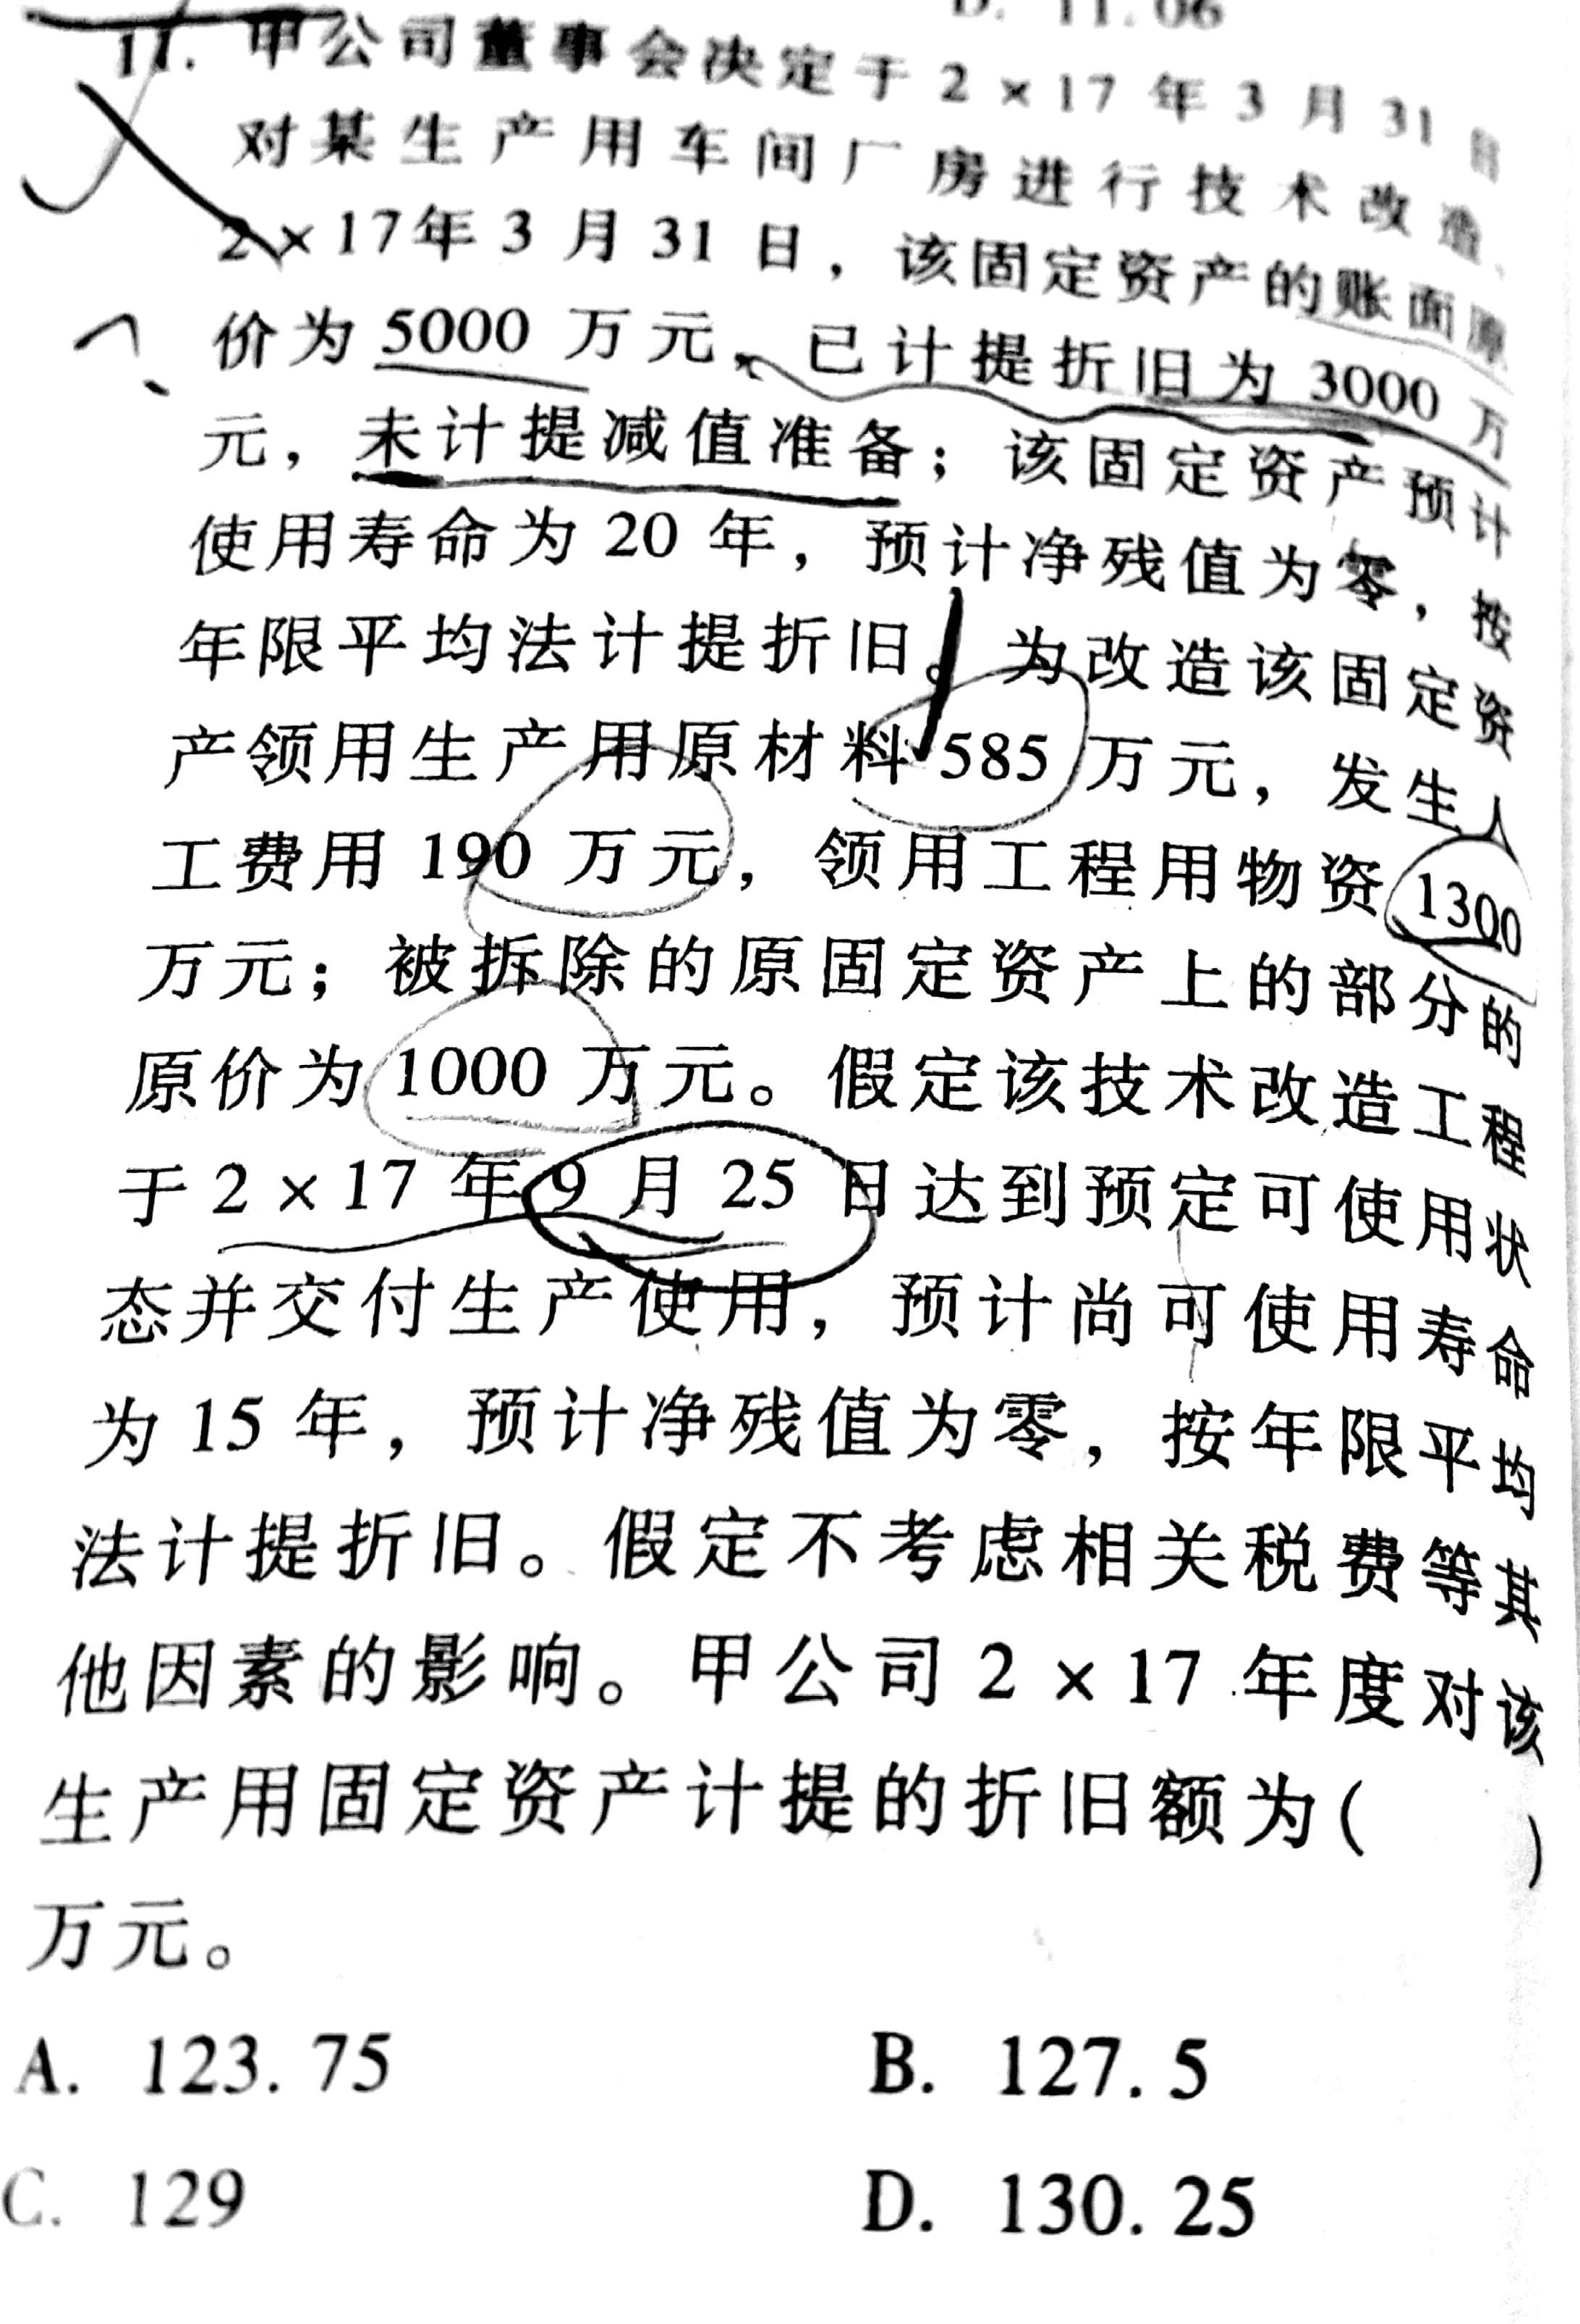 D. 11.06
11. 甲公司董事会决定于 2×17 年 3 月 31 日
对某生产用车间厂房进行技术改造。
2×17年 3 月 31 日，该固定资产的账面原
价为 5000 万元，已计提折旧为 3000 万
元，未计提减值准备；该固定资产预计
使用寿命为 20 年，预计净残值为零，按
年限平均法计提折旧。为改造该固定资
产领用生产用原材料 585 万元，发生人
工费用 190 万元，领用工程用物资 1300
万元；被拆除的原固定资产上的部分的
原价为 1000 万元。假定该技术改造工程
于 2×17 年 9 月 25 日达到预定可使用状
态并交付生产使用，预计尚可使用寿命
为 15 年，预计净残值为零，按年限平均
法计提折旧。假定不考虑相关税费等其
他因素的影响。甲公司 2×17 年度对该
生产用固定资产计提的折旧额为(　　)
万元。
A. 123.75　　B. 127.5
C. 129　　D. 130.25